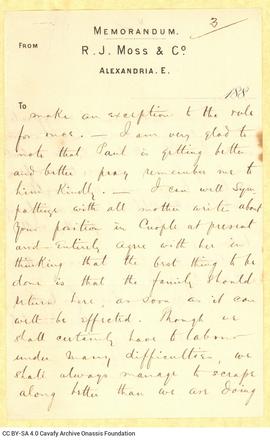 3
MEMORANDUM.
FROM
R. J. MOSS & Co.
ALEXANDRIA. E.
188
To
make an exception to the rule
for once. — I am very glad to
note that Paul is getting better
and better: pray remember me to
him kindly. — I can well sym
pathize with all mother writes about
your position in Cnople at present
and entirely agree with her in
thinking that the best thing to be
done is that the family should
return here, as soon as it can
well be effected. Though we
shall certainly have to labour
under many difficulties, we
shall always manage to scrape
along better than we are doing
CC BY-SA 4.0 Cavafy Archive Onassis Foundation